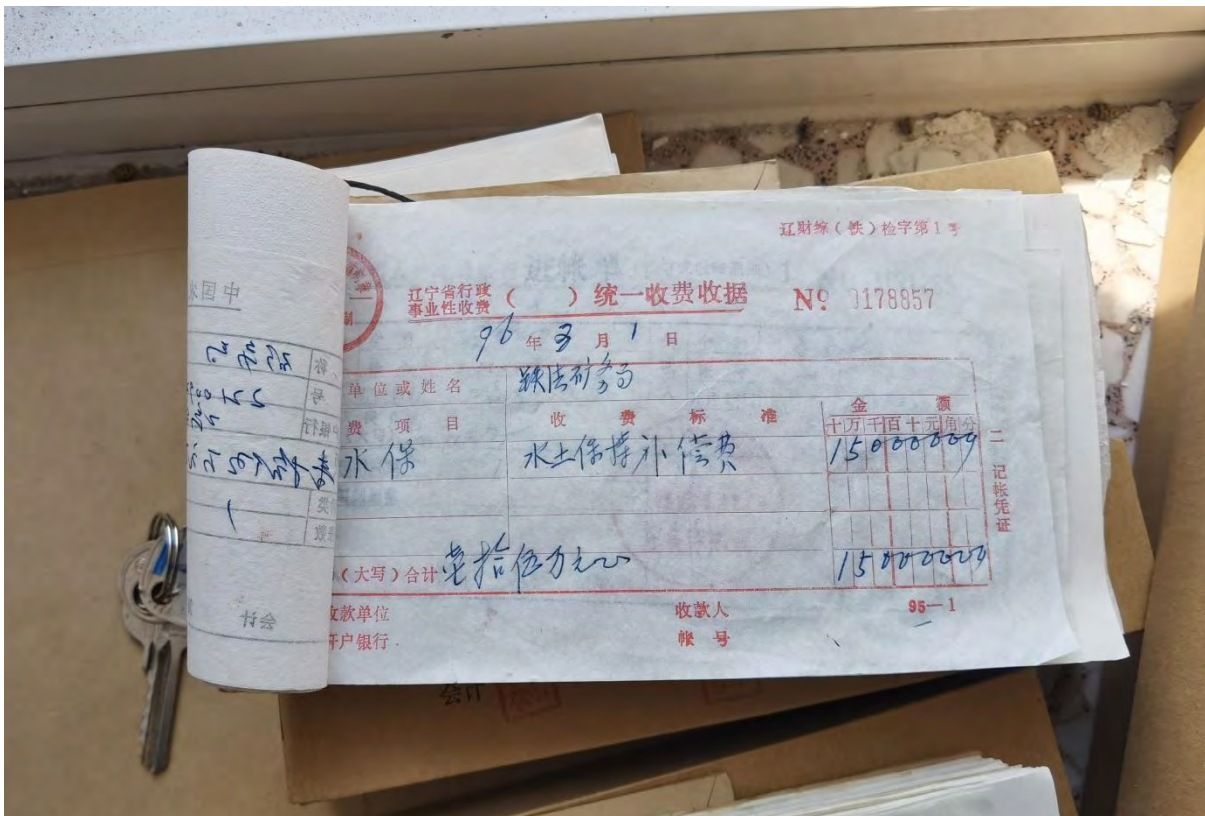 辽财综(铁)检字第1号
辽宁省行政事业性收费( )统一收费收据 № 0178857
96年3月1日
单位或姓名 铁法矿务局
费项目 收费标准 金额
十万千百十元角分
水保 水土保持补偿费 15000000
(大写)合计 壹拾伍万元 15000000
收款单位 收款人 95—1
开户银行 帐号
二记帐凭证
会计